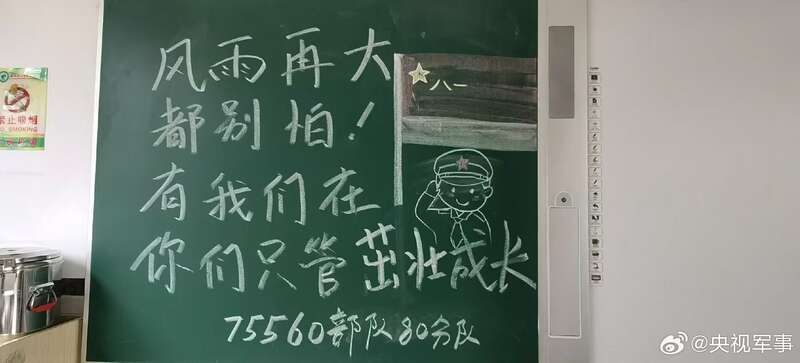 风雨再大
都别怕!
有我们在
你们只管茁壮成长
75560部队80分队
八一
禁止吸烟
NO SMOKING
@央视军事